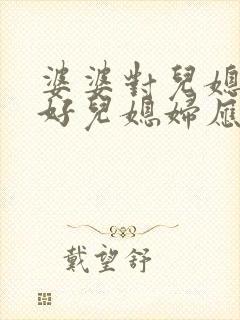 婆婆對兒媳
好兒媳婦應
戴望舒